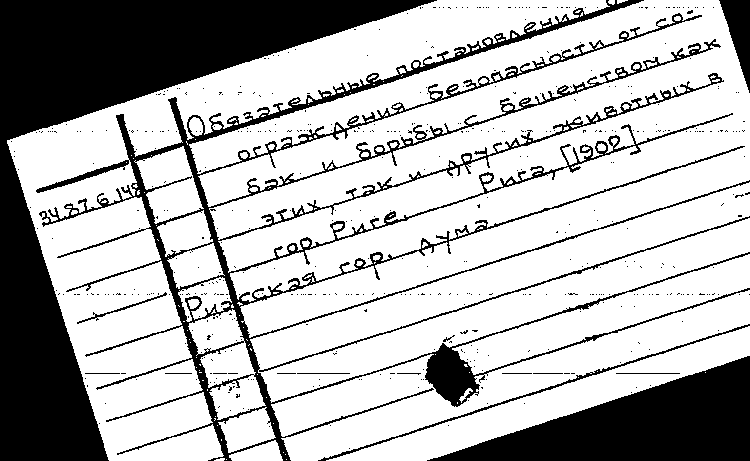 Обязательные постановления о
ограждения безопасности от со-
бак и борьбы с бешенством как
этих, так и других животных в
гор. Риге. Рига, [1900].
34.87.6.148
Рижская гор. дума.